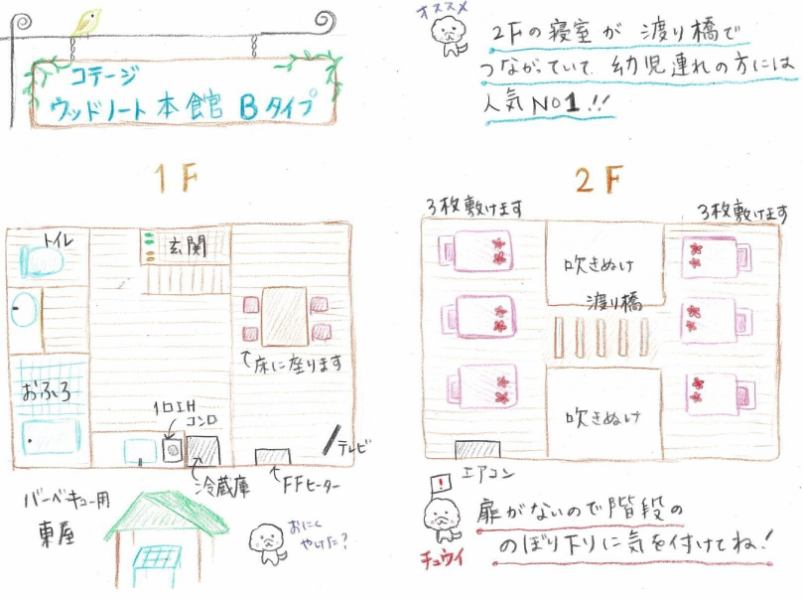 コテージ
ウッドノート本館 Bタイプ
オススメ
2Fの寝室が渡り橋で
つながっていて、幼児連れの方には
人気NO1!!
1F
トイレ
玄関
床に座ります
おふろ
1口IH
コンロ
冷蔵庫
FFヒーター
テレビ
バーベキュー用
東屋
おにく
やけた?
2F
3枚敷けます
3枚敷けます
吹きぬけ
渡り橋
吹きぬけ
エアコン
!
チュウイ
扉がないので階段の
のぼり下りに気を付けてね!